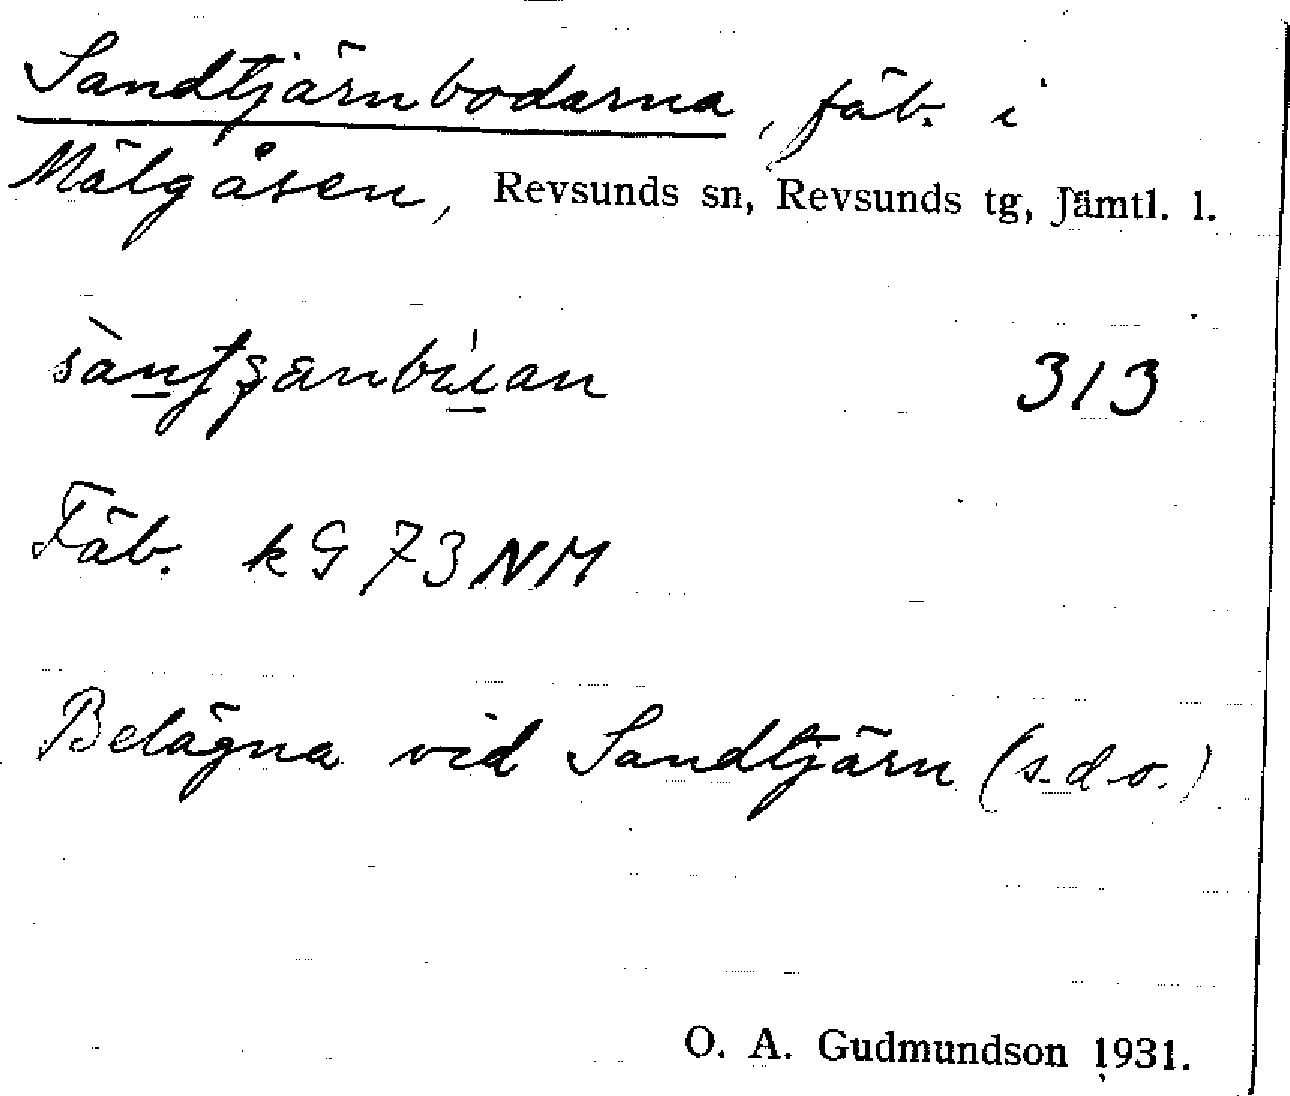 Sandtjärnbodarna, fäb. i
Mälgåsen, Revsunds sn, Revsunds tg, Jämtl. l.
313
Fäb. kG 73 NM
Belägna vid Sandtjärn (s.d.o.)
O. A. Gudmundson 1931.